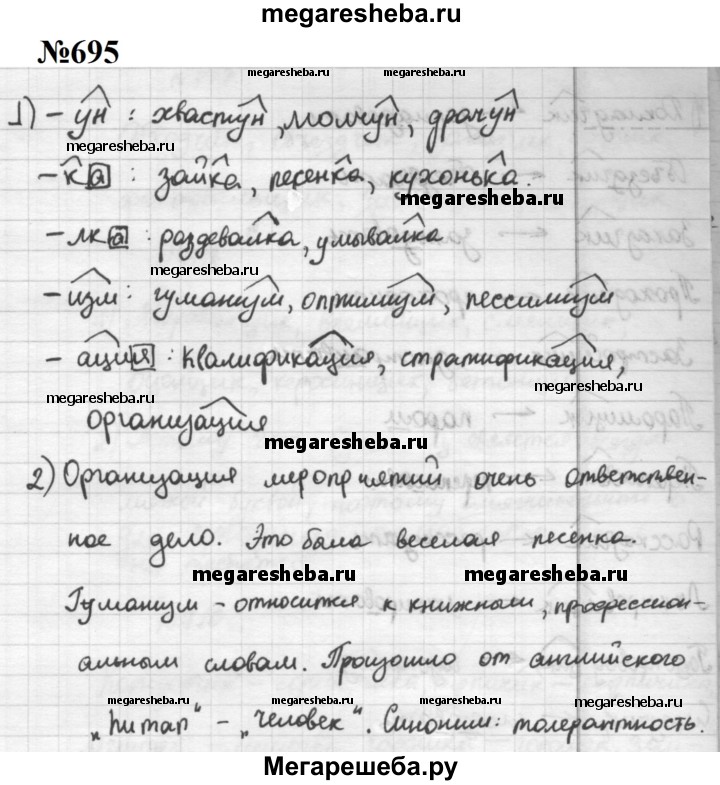 megaresheba.ru
№695
megaresheba.ru megaresheba.ru
1) - ун : хвастун, молчун, драчун
megaresheba.ru
- ка : зайка, песенка, кухонька.
megaresheba.ru
- лка : раздевалка, умывалка
megaresheba.ru
- изм : гуманизм, оптимизм, пессимизм
- ация : квалификация, стратификация,
megaresheba.ru megaresheba.ru
организация
megaresheba.ru
2) Организация мероприятий очень ответствен-
ное дело. Это была веселая песенка.
megaresheba.ru megaresheba.ru
Гуманизм - относится к книжным, профессион-
альным словам. Произошло от английского
megaresheba.ru megaresheba.ru megaresheba.ru megaresheba.ru
„human" - „человек". Синоним: толерантность.
Мегарешеба.ру